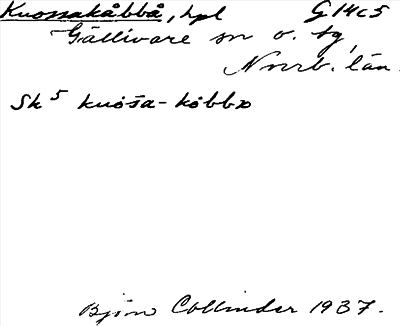 Kuossakåbbå, hpl G 14c5
Gällivare sn o. tg,
Norrb. län.
Sk⁵ kuossa-kobbɒ
Björn Collinder 1937.